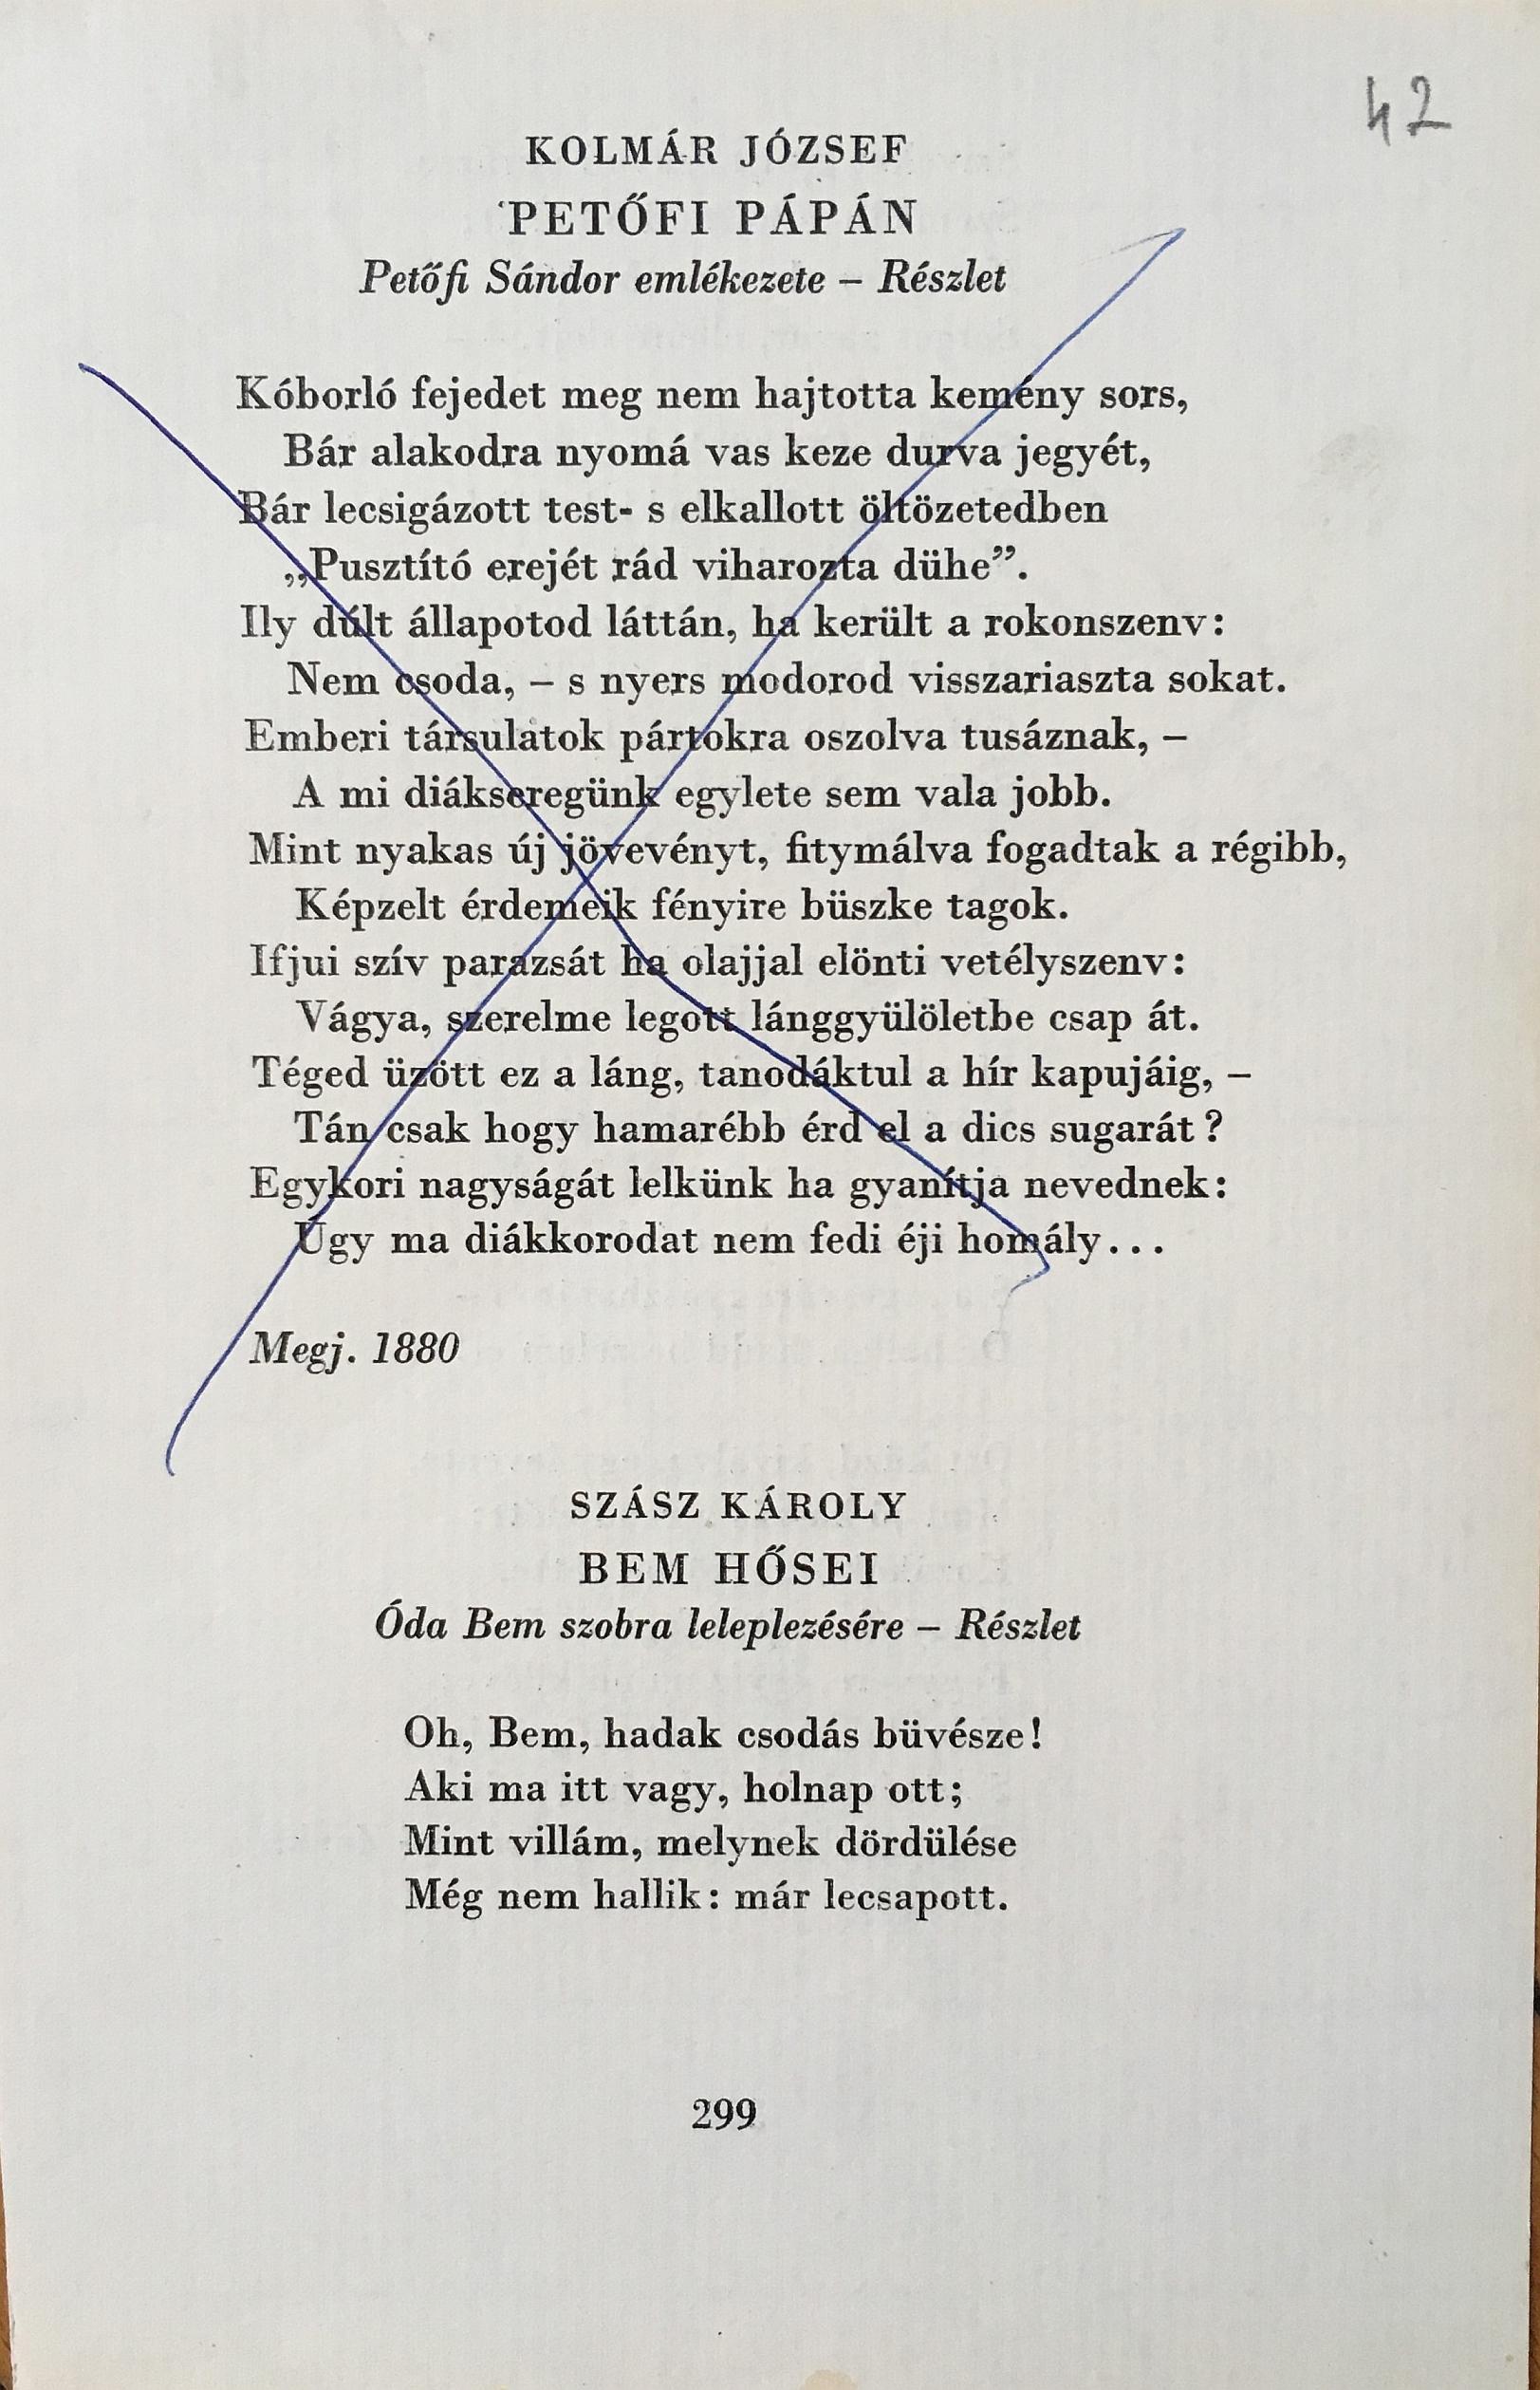 42
KOLMÁR JÓZSEF
PETŐFI PÁPÁN
Petőfi Sándor emlékezete – Részlet
Kóborló fejedet meg nem hajtotta kemény sors,
Bár alakodra nyomá vas keze durva jegyét,
Bár lecsigázott test- s elkallott öltözetedben
„Pusztító erejét rád viharozta dühe”.
Ily dúlt állapotod láttán, ha került a rokonszenv:
Nem csoda, – s nyers modorod visszariaszta sokat.
Emberi társulatok pártokra oszolva tusáznak, –
A mi diákseregünk egylete sem vala jobb.
Mint nyakas új jövevényt, fitymálva fogadtak a régibb,
Képzelt érdemeik fényire büszke tagok.
Ifjui szív parázsát ha olajjal elönti vetélyszenv:
Vágya, szerelme legott lánggyülöletbe csap át.
Téged üzött ez a láng, tanodáktul a hír kapujáig, –
Tán csak hogy hamarébb érd el a dics sugarát?
Egykori nagyságát lelkünk ha gyanítja nevednek:
Úgy ma diákkorodat nem fedi éji homály...
Megj. 1880
SZÁSZ KÁROLY
BEM HŐSEI
Óda Bem szobra leleplezésére – Részlet
Oh, Bem, hadak csodás büvésze!
Aki ma itt vagy, holnap ott;
Mint villám, melynek dördülése
Még nem hallik: már lecsapott.
299